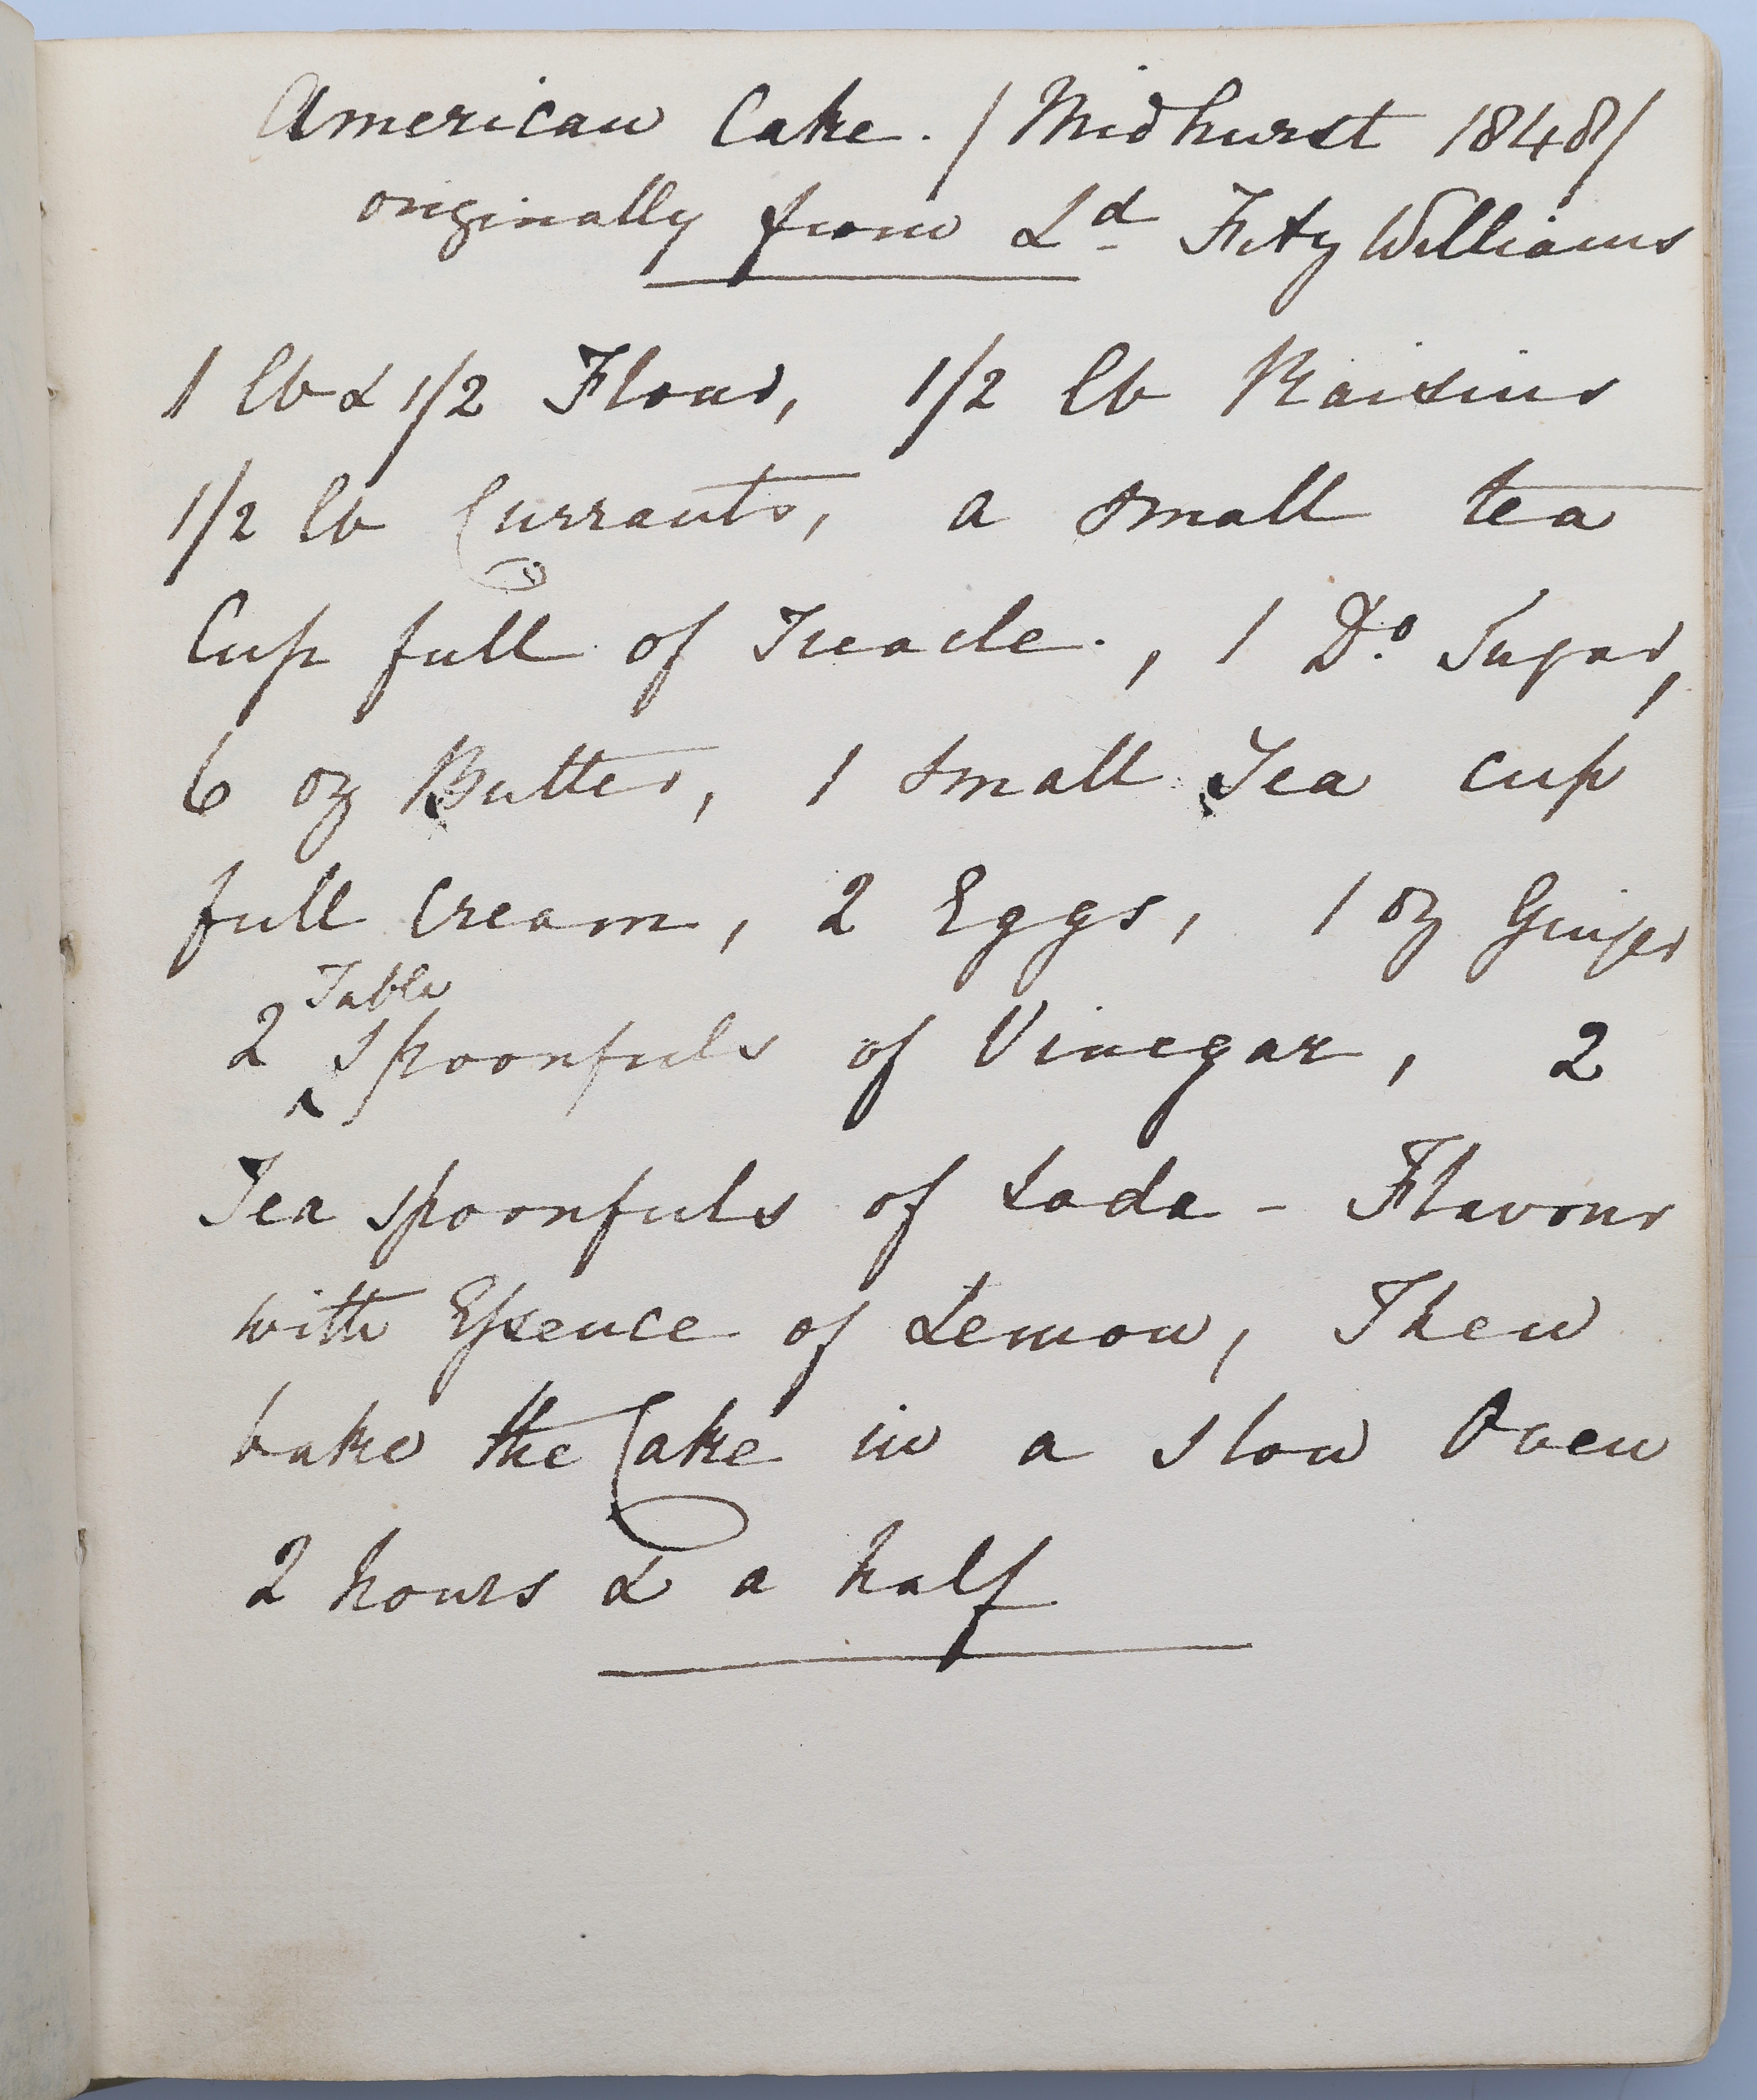 American Cake. / Midhurst 1848 /
originally from Ld Fitz Williams
1 lb & 1/2 Flour, 1/2 lb Raisins
1/2 lb Currants, a small tea
Cup full of Treacle., 1 Do. Sugar,
6 oz Butter, 1 small Tea cup
full cream, 2 Eggs, 1 oz Ginger
2 Table spoonfuls of Vinegar, 2
Tea spoonfuls of Soda - Flavour
with Essence of Lemon, Then
bake the Cake in a slow Oven
2 hours & a half